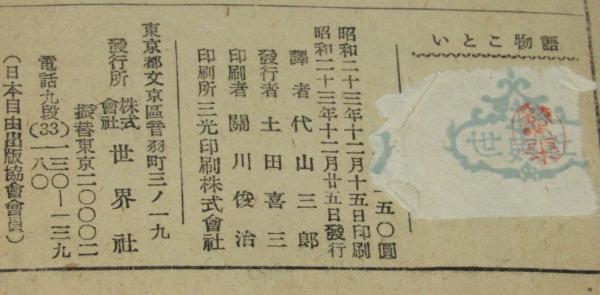 いとこ物語
五〇圓
昭和二十三年十二月十五日印刷
昭和二十三年十二月廿五日發行
譯者 代山三郎
發行者 土田喜三
印刷者 關川俊治
印刷所 三光印刷株式會社
東京都文京區音羽町三ノ一九
發行所 株式會社 世界社
振替東京二〇〇〇二
電話九段(33)一三〇―一三九
一八〇
(日本自由出版協會會員)